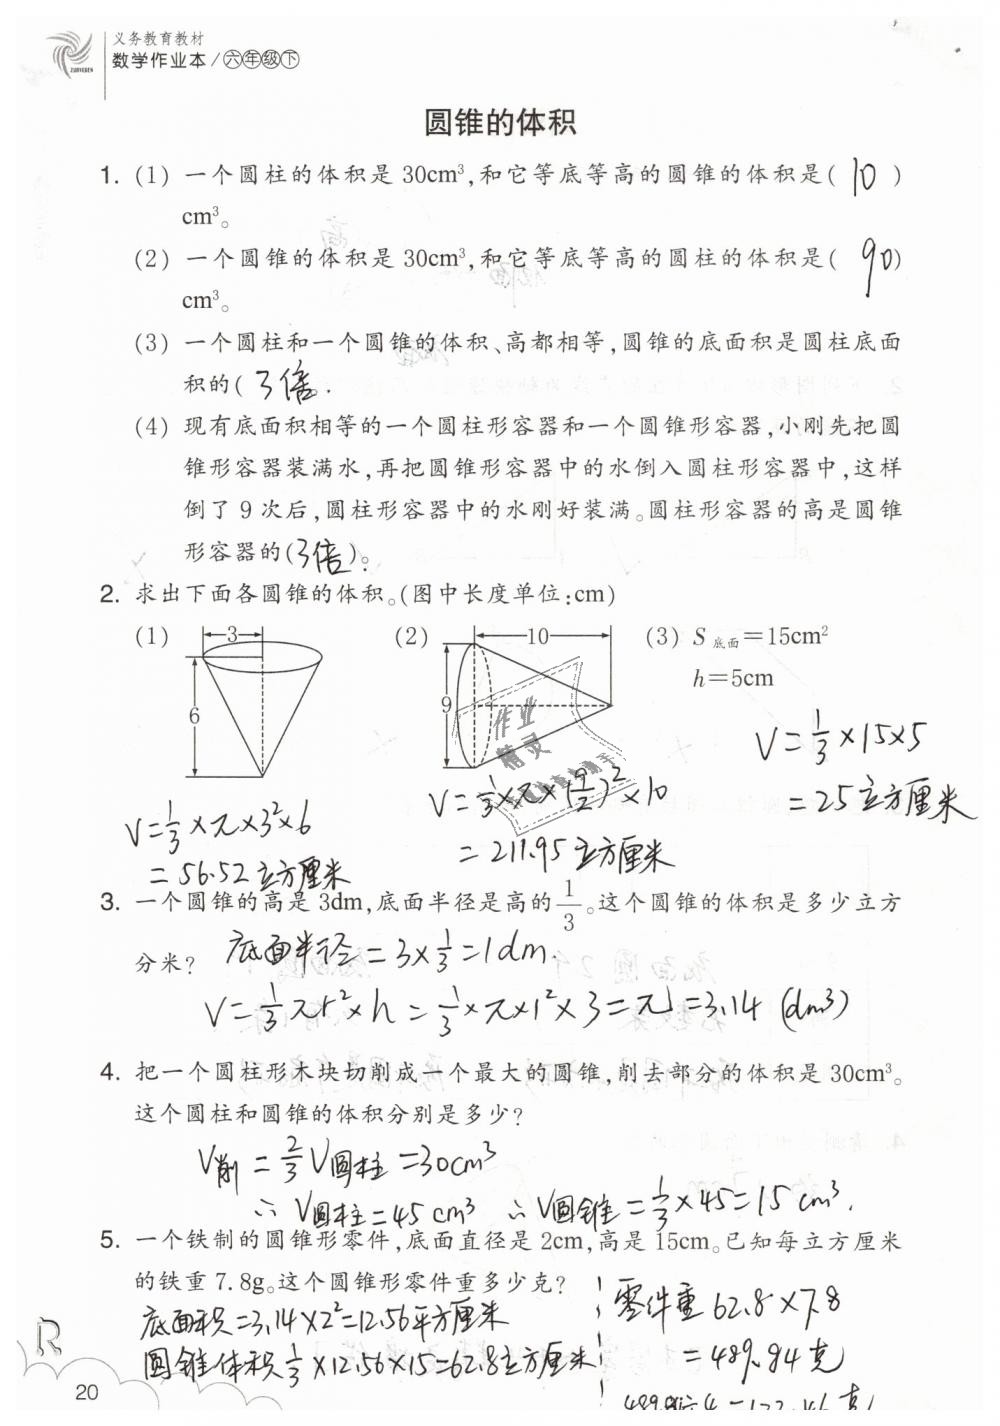 义务教育教材
数学作业本/六年级下
圆锥的体积
1. (1) 一个圆柱的体积是 30cm³,和它等底等高的圆锥的体积是( 10 )
cm³。
(2) 一个圆锥的体积是 30cm³,和它等底等高的圆柱的体积是( 90 )
cm³。
(3) 一个圆柱和一个圆锥的体积、高都相等,圆锥的底面积是圆柱底面
积的( 3倍.
(4) 现有底面积相等的一个圆柱形容器和一个圆锥形容器,小刚先把圆
锥形容器装满水,再把圆锥形容器中的水倒入圆柱形容器中,这样
倒了 9 次后,圆柱形容器中的水刚好装满。圆柱形容器的高是圆锥
形容器的(3倍)。
2. 求出下面各圆锥的体积。(图中长度单位:cm)
(1) 3 6
(2) 10 9
(3) S底面=15cm²
h=5cm
V=1/3×15×5
=25立方厘米
V=1/3×π×(9/2)²×10
=211.95立方厘米
V=1/3×π×3²×6
=56.52立方厘米
作业
精灵
3. 一个圆锥的高是 3dm,底面半径是高的1/3。这个圆锥的体积是多少立方
分米?
底面半径=3×1/3=1dm.
V=1/3πr²×h=1/3×π×1²×3=π=3.14 (dm3)
4. 把一个圆柱形木块切削成一个最大的圆锥,削去部分的体积是 30cm³。
这个圆柱和圆锥的体积分别是多少?
V削=2/3V圆柱=30cm3
∴V圆柱=45cm3 ∴V圆锥=1/3×45=15cm3.
5. 一个铁制的圆锥形零件,底面直径是 2cm,高是 15cm。已知每立方厘米
的铁重 7.8g。这个圆锥形零件重多少克?
底面积=3.14×2²=12.56平方厘米
圆锥体积1/3×12.56×15=62.8立方厘米
零件重62.8×7.8
=489.84克
R
20